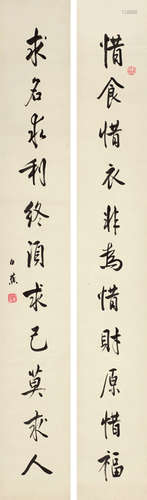 惜食惜衣非為惜財原惜福
求名求利終須求己莫求人
白蕉